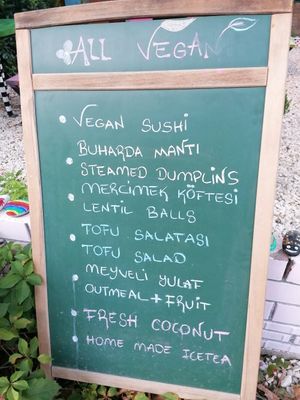 ALL VEGAN
VEGAN SUSHI
BUHARDA MANTI
STEAMED DUMPLINS
MERCIMEK KÖFTESİ
LENTIL BALLS
TOFU SALATASI
TOFU SALAD
MEYVELİ YULAF
OUTMEAL + FRUIT
FRESH COCONUT
HOME MADE ICETEA